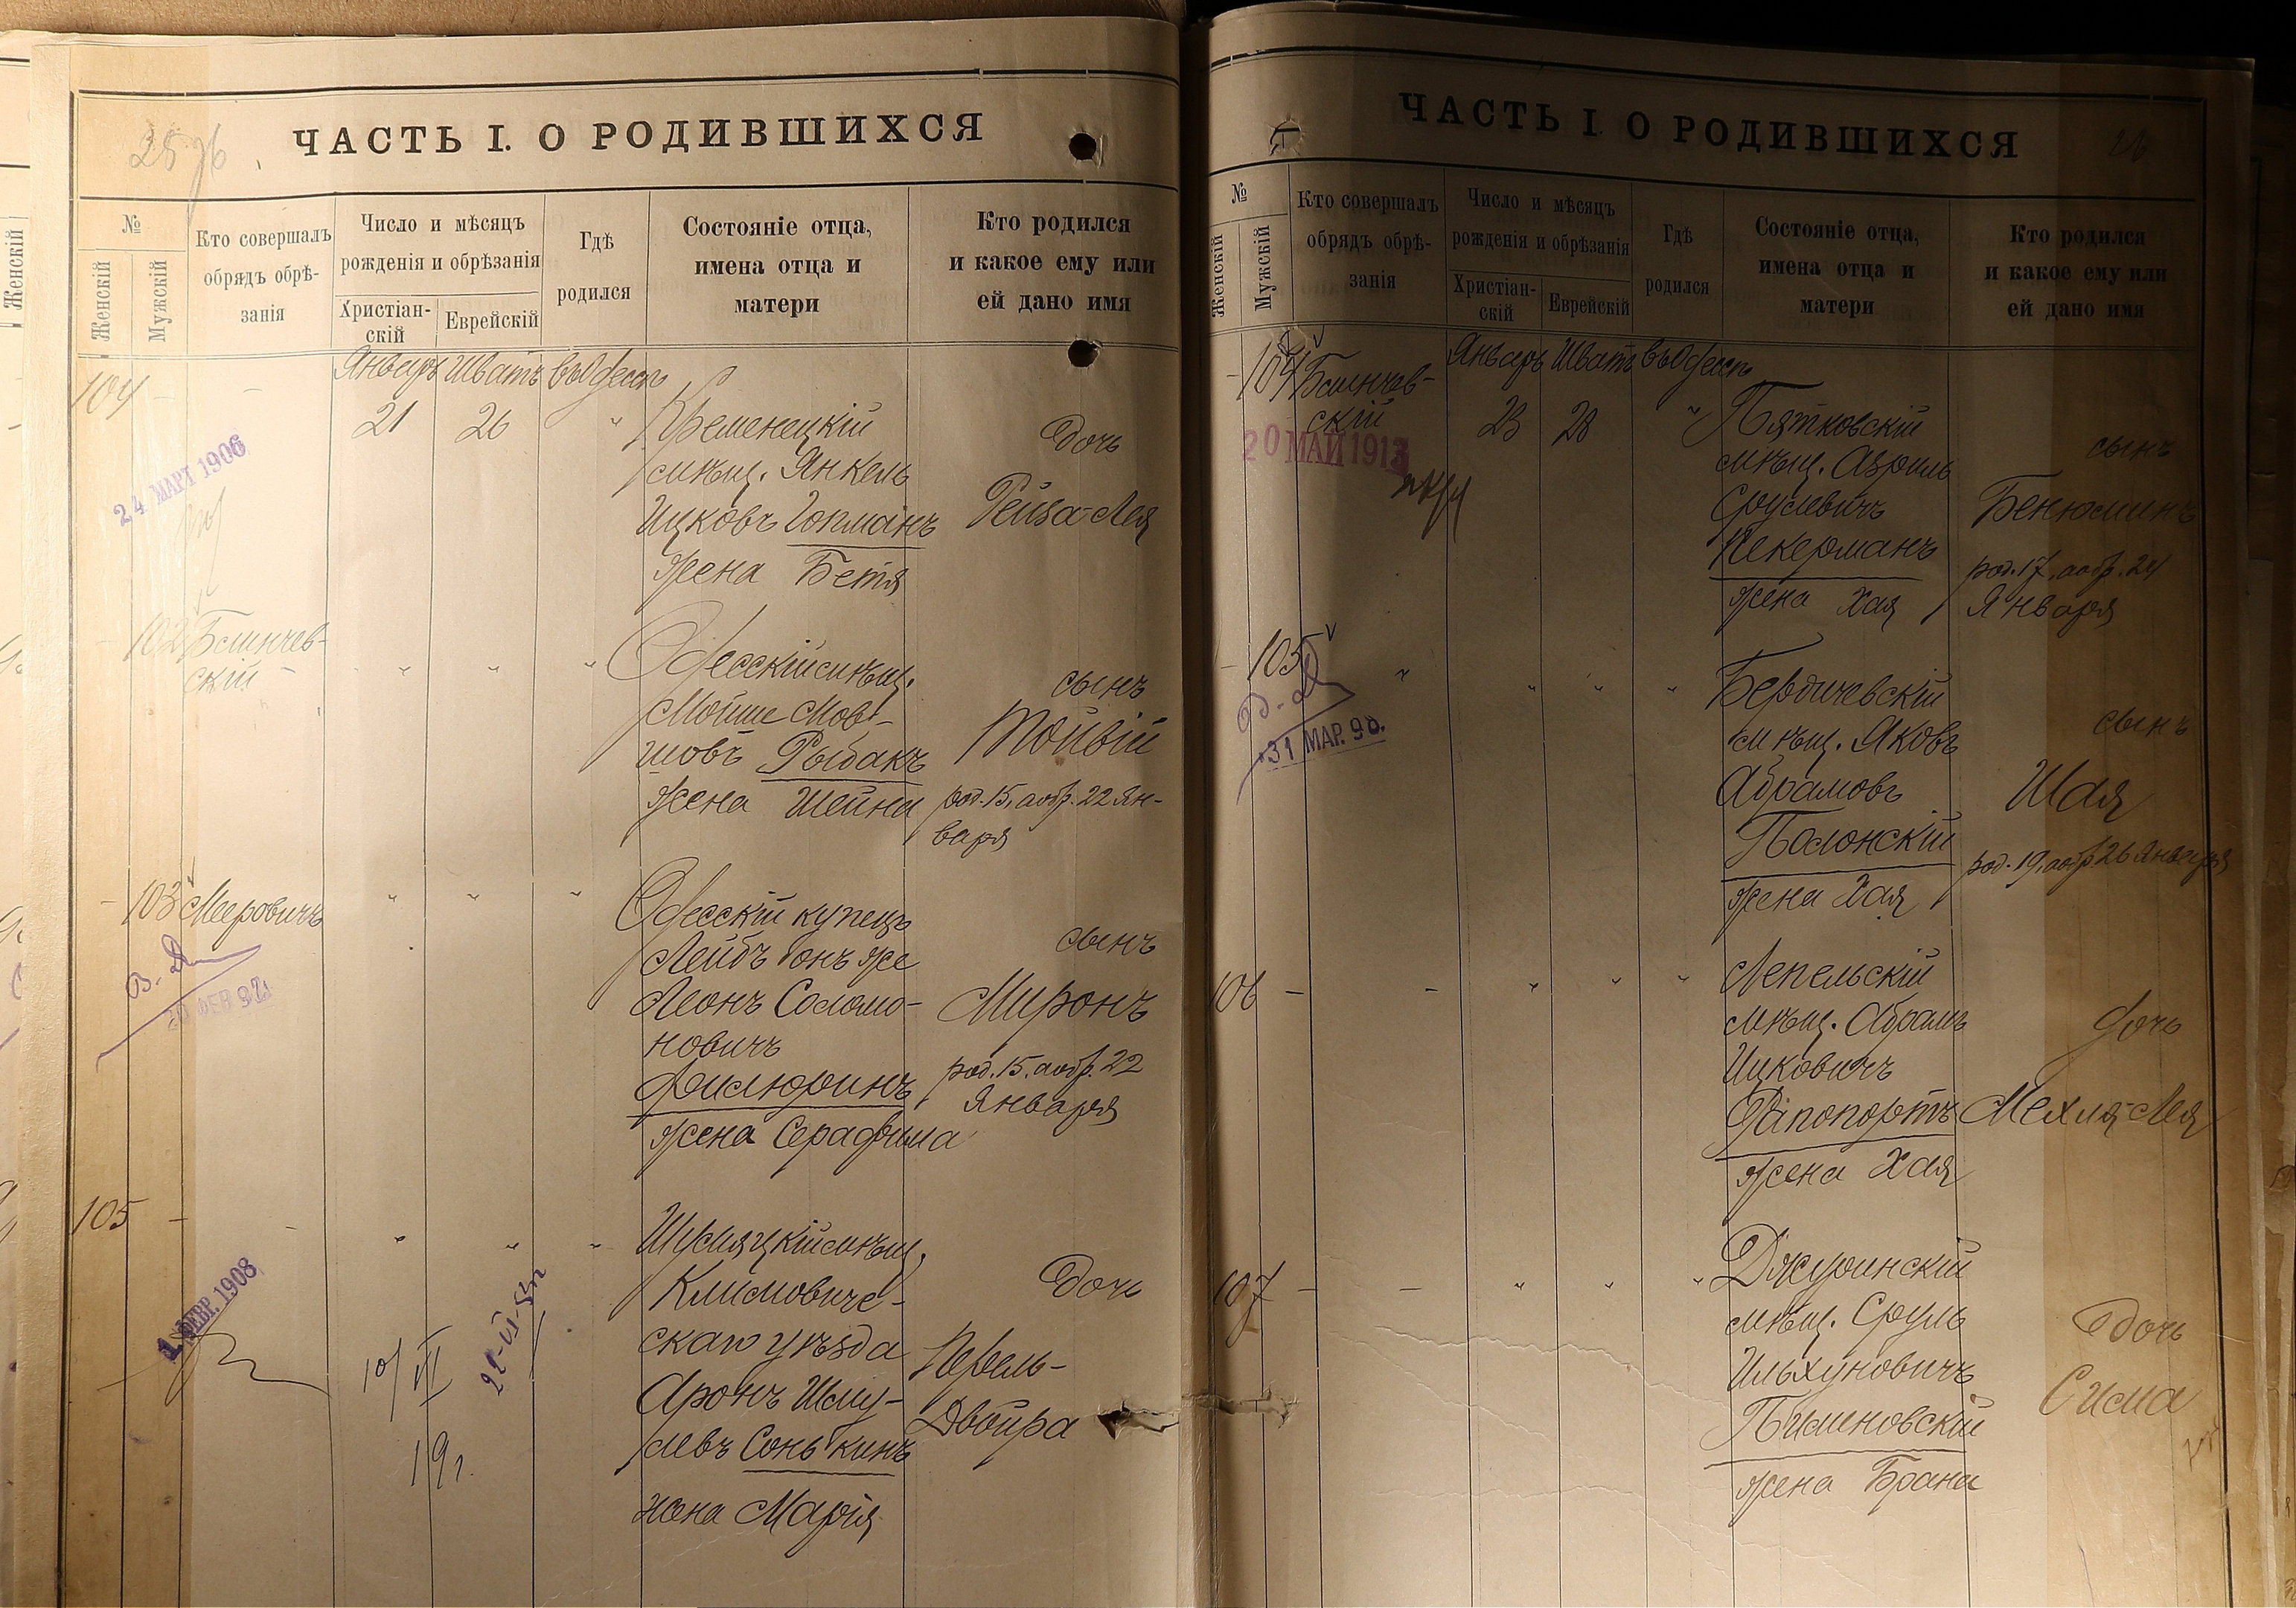 ЧАСТЬ I. О РОДИВШИХСЯ
№
Женскій
Мужскій
Кто совершалъ
обрядъ обрѣ-
занія
Число и мѣсяцъ
рожденія и обрѣзанія
Христіан-
скій
Еврейскій
Гдѣ
родился
Состояніе отца,
имена отца и
матери
Кто родился
и какое ему или
ей дано имя
104 -
-
Январь Шватъ въ Одессѣ
21 26 "
Кременецкій
мѣщ. Янкель
Ицковъ Гопманъ
жена Бетя
дочь
Рейза-Лея
24 МАРТ 1906
- 102 Блинчев-
скій -
" " "
Одесскій мѣщ.
Мойше Мов-
шовъ Рыбакъ
жена Шейна
сынъ
Тойвій
род. 15, а обр. 22 Ян-
варя
- 103 Мееровичъ
" " "
Одесскій купецъ
Лейбъ онъ же
Леонъ Соломо-
новичъ
Филюринъ
жена Серафима
сынъ
Миронъ
род. 15, а обр. 22
Января
105 -
-
" " "
Шумяцкій мѣщ.
Климовиче-
скаго уѣзда
Аронъ Шму-
левъ Сонькинъ
жена Марія
дочь
Перель-
Двойра
ФЕВР. 1908
10/VII
19г.
ЧАСТЬ I. О РОДИВШИХСЯ
№
Женскій
Мужскій
Кто совершалъ
обрядъ обрѣ-
занія
Число и мѣсяцъ
рожденія и обрѣзанія
Христіан-
скій
Еврейскій
Гдѣ
родился
Состояніе отца,
имена отца и
матери
Кто родился
и какое ему или
ей дано имя
- 104 Блинчев-
скій
Январь Шватъ въ Одессѣ
23 28 "
20 МАЙ 1913
Пятковскій
мѣщ. Азриль
Срулевичъ
Пекерманъ
жена Хая
сынъ
Бенюминъ
род. 17, а обр. 24
Января
- 105
" " " "
31 МАР. 98.
Бердичевскій
мѣщ. Яковъ
Абрамовъ
Полонскій
жена Хая
сынъ
Шая
род. 19, а обр. 26 Января
106 -
- " " "
Лепельскій
мѣщ. Абрамъ
Ицковичъ
Рапопортъ
жена Хая
дочь
Мехля-Лея
107 -
- " " "
Джуринскій
мѣщ. Сруль
Ильхуновичъ
Пименовскій
жена Брана
дочь
Сима